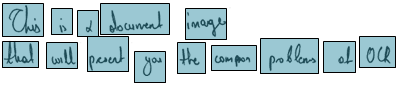 This is a document image
that will present you the common problems of OCR